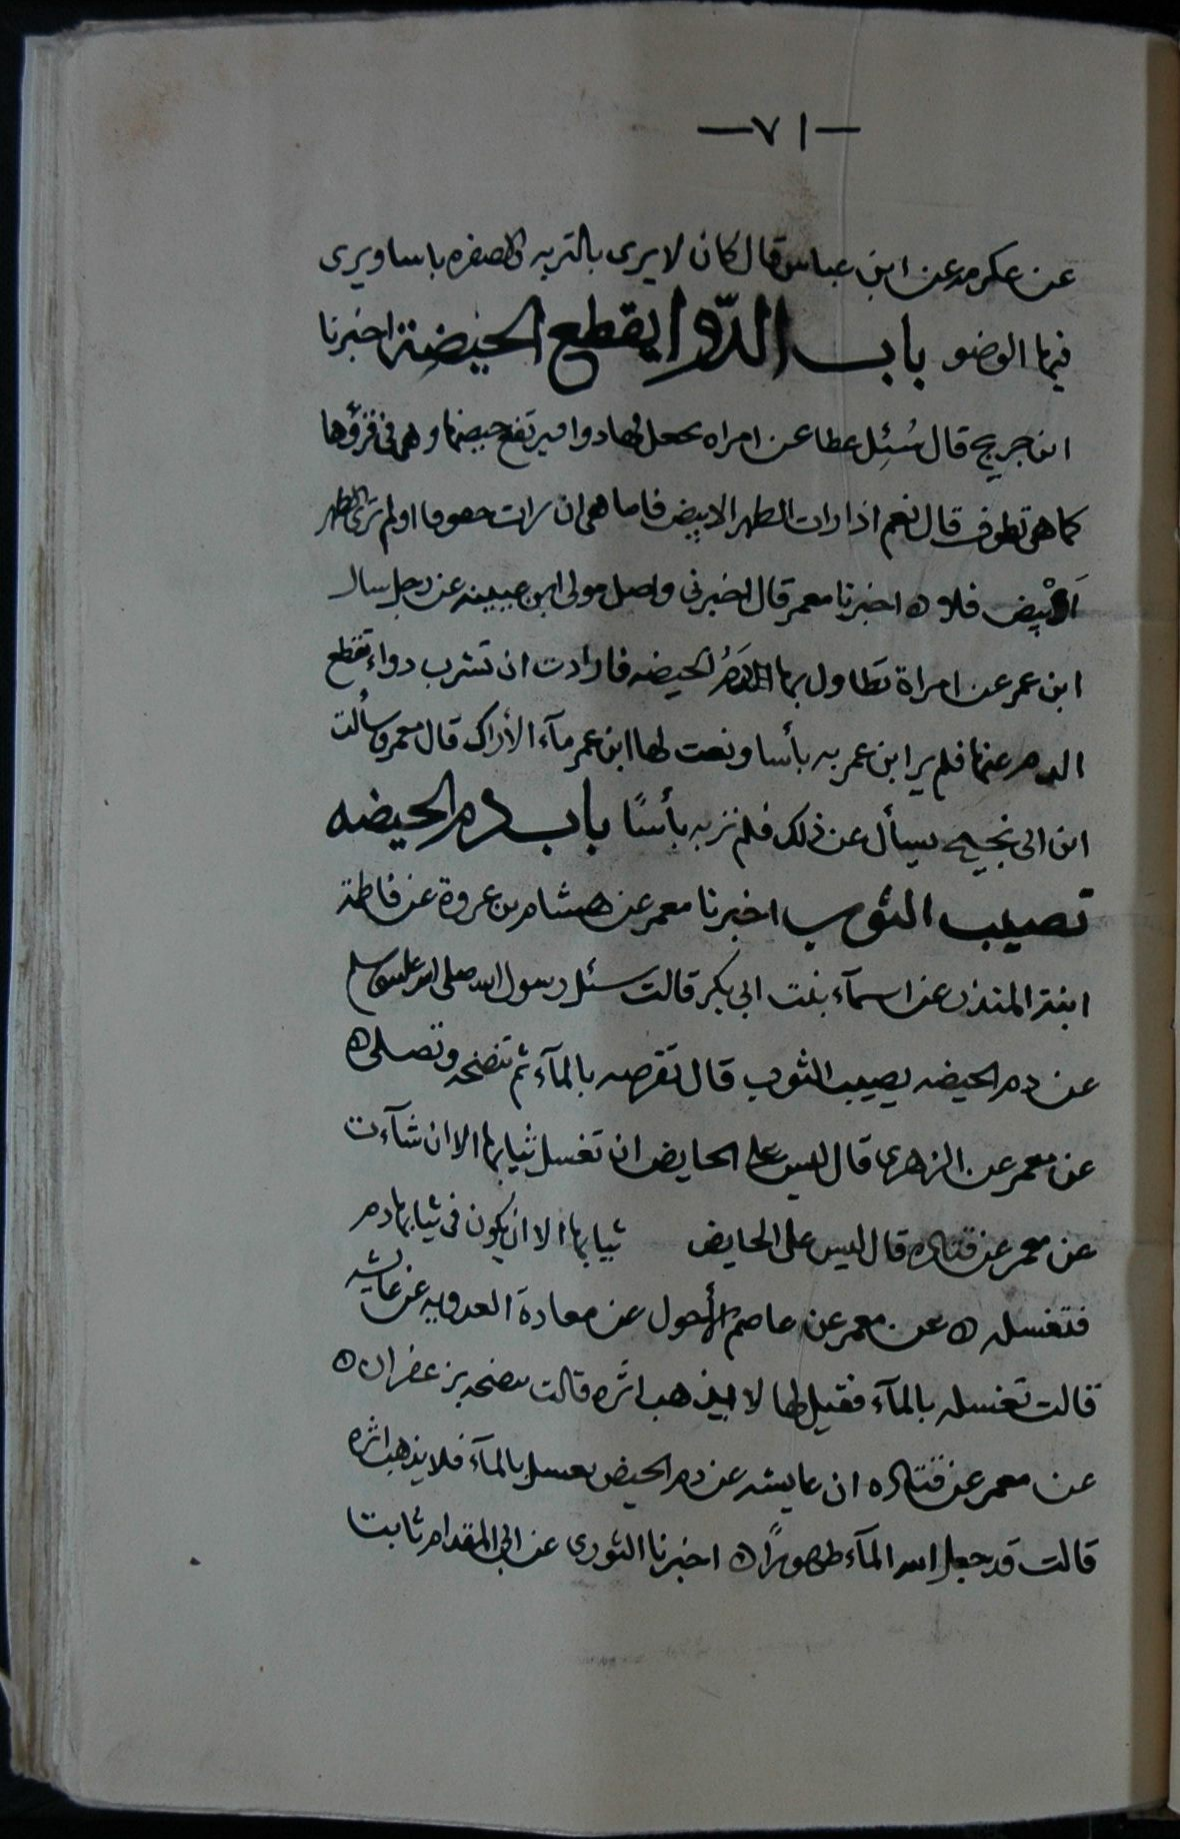 — ٧١ —
عن عكرمه عن ابن عباس قال كان لا يرى بالتربه والصفره باسا ويرى
فيها الوضو باب الدّوا يقطع الحيضة اخبرنا
ابن جريج قال سُئِل عطا عن امراه تجعل لها دوا فيرتفع حيضها وهى فى قرؤها
كما هى تطوف قال نعم اذا رات الطهر الابيض فاما هى ان رات حقوقا ولم ترى الطهر
الابيض فلا ه اخبرنا معمر قال اخبرنى واصل مولى ابن عيينه عن رجل سال
ابن عمر عن امراة تطاول بها الدم الحيضه فارادت ان تشرب دواء تقطع
الدم عنها فلم ير ابن عمر به بأسا ونعت لها ابن عمر مآء الأراك قال معمر وسألت
ابن ابى نجيح يسأل عن ذلك فلم نر به بأسًا باب دم الحيضه
تصيب الثوب اخبرنا معمر عن هشام بن عروة عن فاطمة
ابنة المنذر عن اسمآء بنت ابى بكر قالت سئل رسول الله صلى الله عليه وسلم
عن دم الحيضه يصيب الثوب قال تقرصه بالمآء ثم تنضحه وتصلى ه
عن معمر عن الزهرى قال ليس على الحايض ان تغسل ثيابها الا ان شآءت
عن معمر عن قتاده قال ليس على الحايض ثيابها الا ان يكون فى ثيابها دم
فتغسله ه عن معمر عن عاصم الأحول عن معادة العدويه عن عايشه
قالت تغسله بالمآء فقيل لها لا يذهب اثره قالت تنضحه بزعفران ه
عن معمر عن قتاده ان عايشه عن دم الحيض يغسل بالمآء فلا يذهب اثره
قالت قد جعل الله المآء طهورًا ه اخبرنا الثورى عن ابى المقدام ثابت